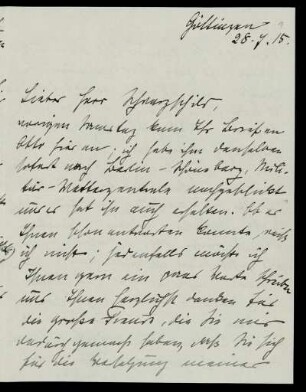 Göttingen
28.7.15.
Lieber Herr Schwarzschild,
vorigen Samstag kam Ihr Brief an
Otto hier an; ich habe ihn denselben
sofort nach Berlin-Schöneberg, Mili-
tär-Wetterzentrale nachgeschickt
und er hat ihn auch erhalten. Ob er
Ihnen schon antworten konnte, weiß
ich nicht; jedenfalls möchte ich
Ihnen gern ein paar Worte schreiben
und Ihnen herzlichst danken für
die große Freude, die Sie mir
dadurch gemacht haben, daß Sie sich
für die Besetzung meiner